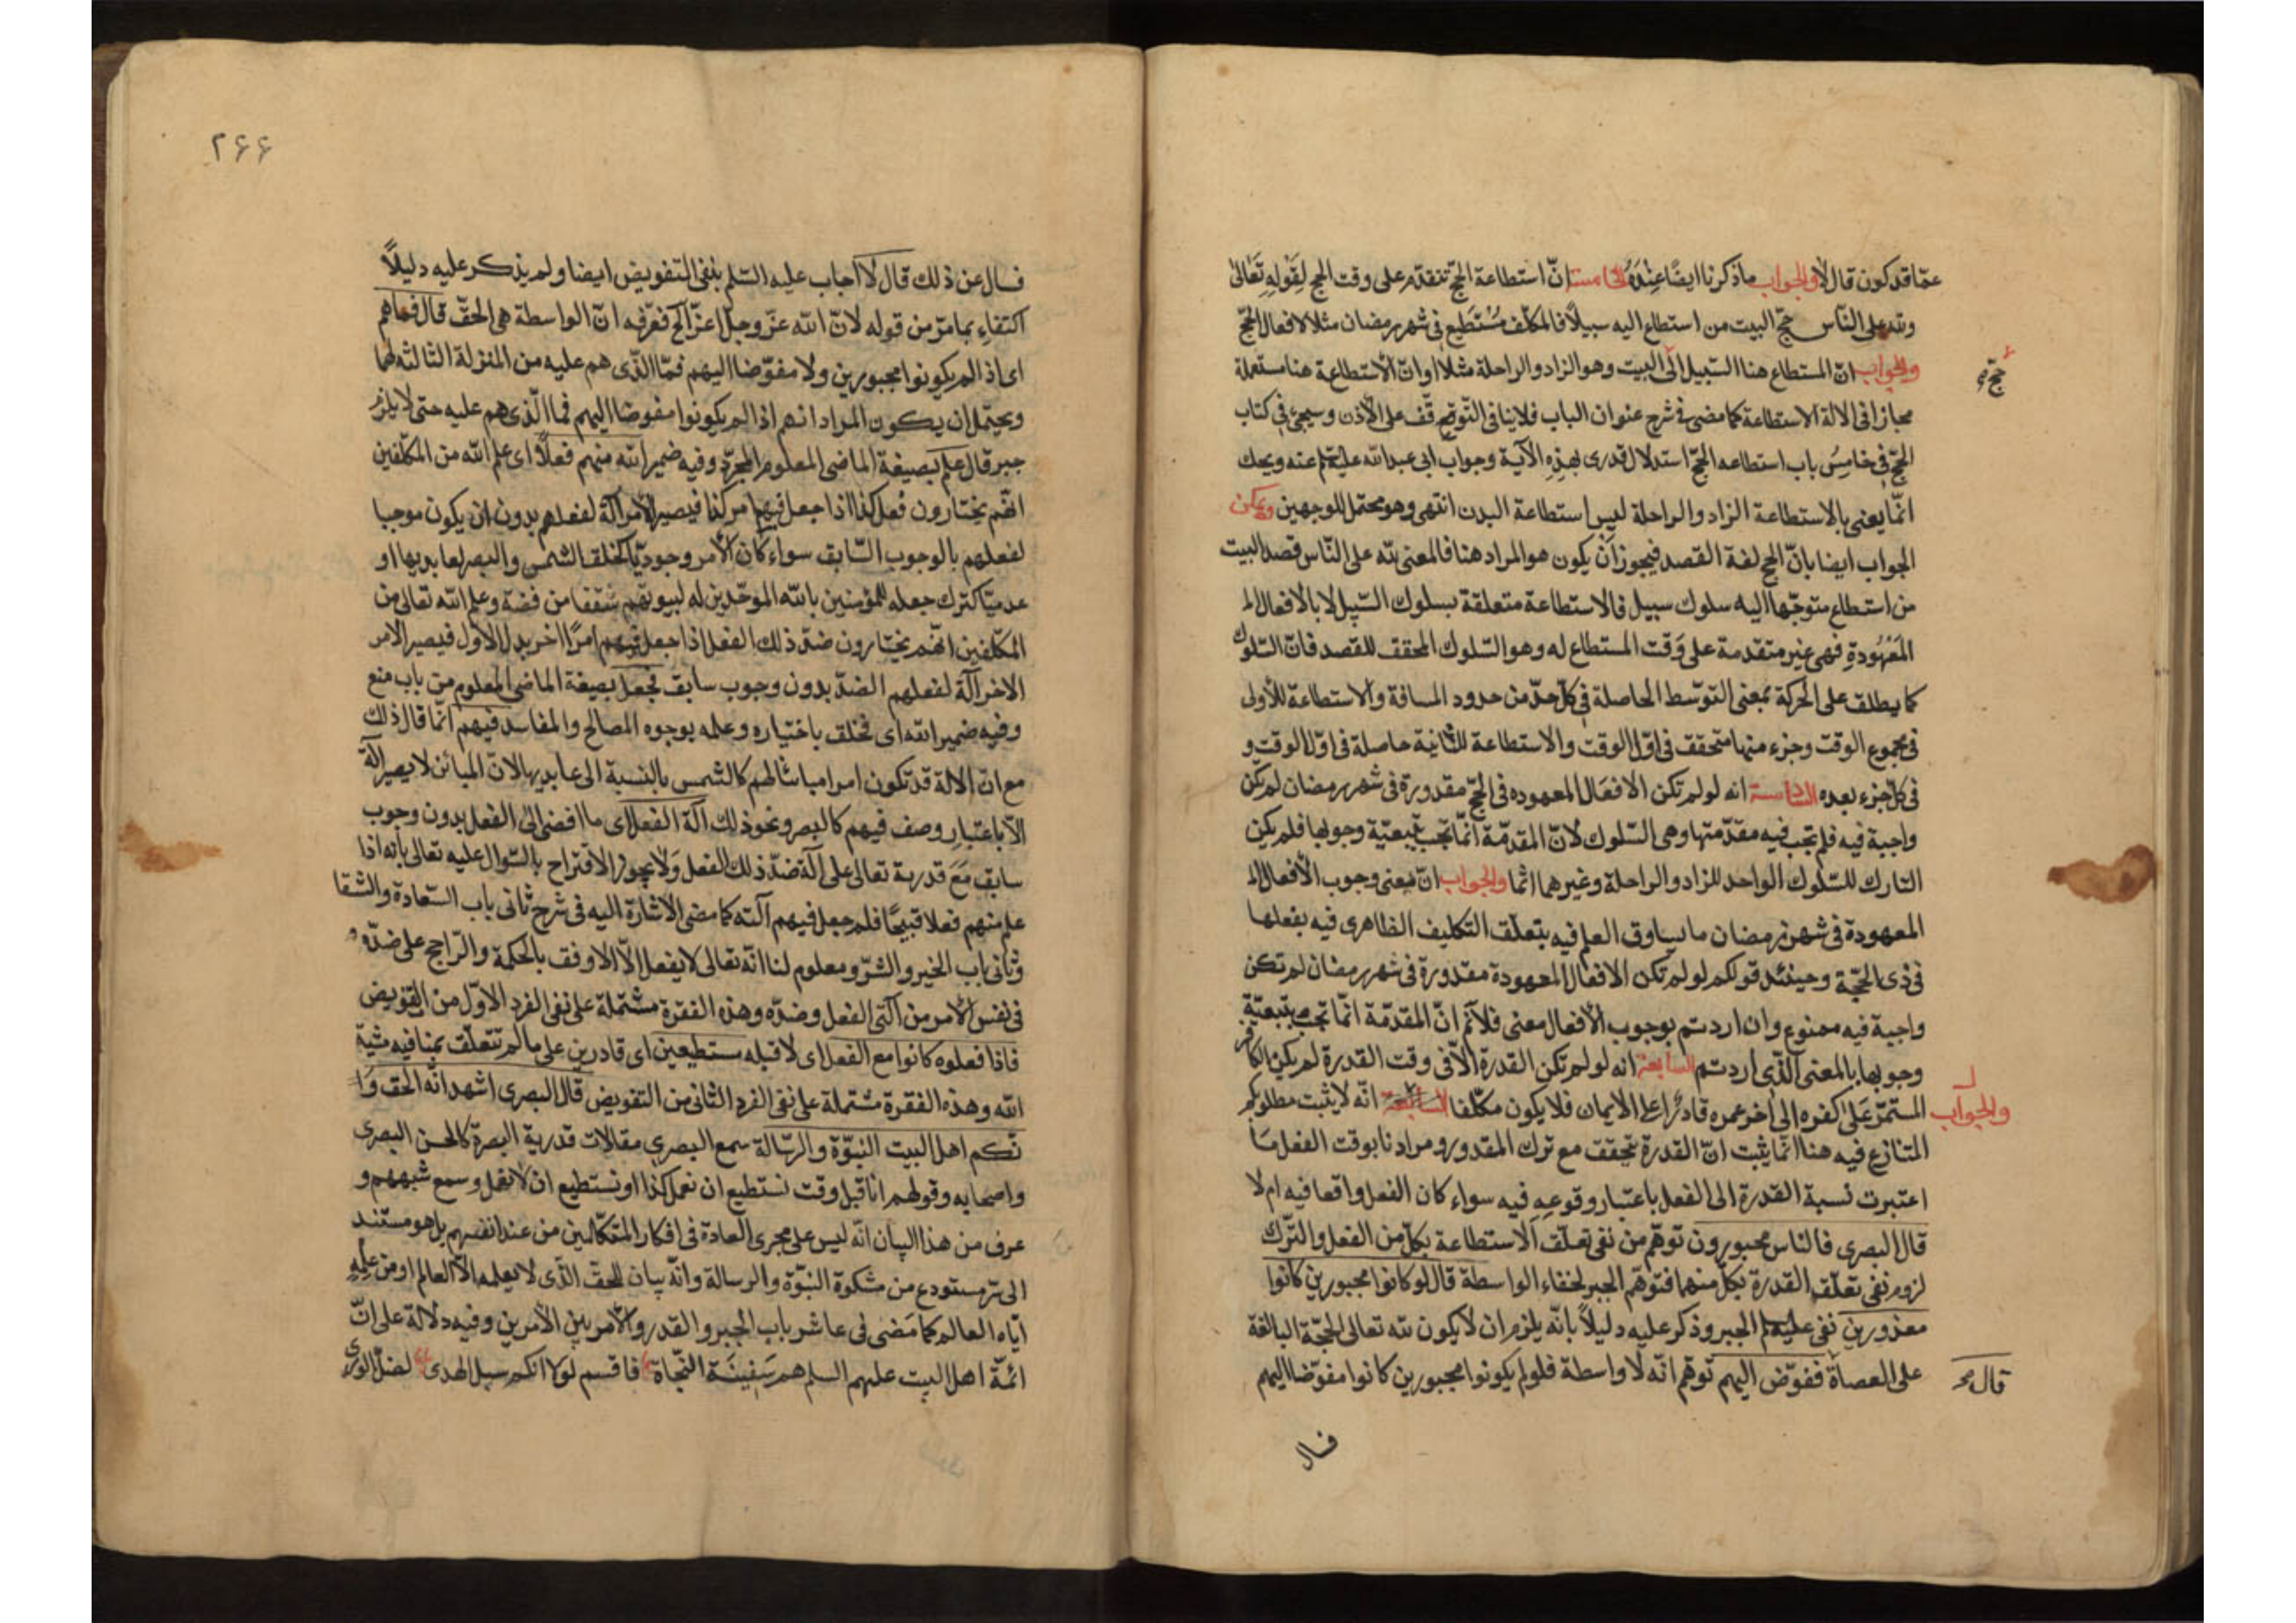 عمّا قد كون قال لا والجواب ما ذكرنا ايضًا عِنْدَهُ الخامسة انّ استطاعة الحجّ تتقدّم على وقت الحج لِقَولِهِ تَعَالىٰ
ولله على النّاس حجّ البيت من استطاع اليه سبيلًا فالمكلّف مُسْتَطيع فى شهر رمضان مثلا لافعال الحجّ
والجواب انّ المستطاع هنا السّبيل الى البيت وهو الزاد والراحلة مثلًا او انّ الاستطاعة هنا مستعملة
حجّ م
مجازا فى الالة الاستطاعة كما مضى فى شرح عنوان الباب فلا ينافى التّوقّف على الاذن وسيجئ فى كتاب
الحجّ فى خامِسُ باب استطاعه الحجّ استدلال قدرى بهذِهِ الآية وجواب ابى عبد الله عليه عنه ويحك
انّما يعنى بالاستطاعة الزاد والراحلة ليس استطاعة البدن انتهى وهو محتمل للوجهين ويمكن
الجواب ايضا بانّ الحج لغة القصد فيجوز اَن يكون هو المراد هنا فالمعنى لله على النّاس قصد البيت
من استطاع متوجّها اليه سلوك سبيل فالاستطاعة متعلقة بسلوك السّبيل لا بالافعال ال
المَعْهُودةِ فهى غير متقدمة على وَقت المستطاع له وهو السّلوك المحقق للقصد فانّ السّلوك
كما يطلق على الحركة بمعنى التوسّط الحاصلة فى كلّ حدّ من حدود المسافة والاستطاعة للأولى
فى مجموع الوقت وجزء منها متحقق فى اوّل الوقت والاستطاعة للثّانية حاصلة فى اوّل الوقت و
فى كلّ جزء بعده السّادسة انه لو لم تكن الافعَال المعهوده فى الحجّ مقدورة فى شهر رمضان لم تكن
واجبة فيه فلم تجب فيه مقدّمتها وهى السّلوك لانّ المقدّمة انّما تجب بتبعيّة وجوبها فلم يكن
التارك للسّلوك الواحد للزاد والراحلة وغيرهما اثما والجواب انّ معنى وجوب الأفعال ال
المعهودة فى شهر رمضان ما يساوق العلم فيه بتعلّق التكليف الظاهرى فيه بفعلها
فى ذى الحجّة وحينئذ قولكم لو لم تكن الافعال المعهودة مقدورة فى شهر رمضان لم تكن
واجبة فيه ممنوع وان اردتم بوجوب الأفعال معنى فلا نم انّ المقدّمة انّما تجب بتبعيّة
وجوبها بالمعنى الّذى اردتم السابعة انه لو لم تكن القدرة الّا فى وقت القدرة لم يكن الكافر
المستمرّ عَلىٰ كفره الى اخر عمره قادرًا على الايمان فلا يكون مكلّفا انّه لا يثبت مطلوبكم
والجواب
المتنازع فيه هنا انّما يثبت انّ القدرة تتحقق مع ترك المقدور ومرادنا بوقت الفعل مَا
اعتبرت نسبة القدرة الى الفعل باعتبار وقوعه فيه سواء كان الفعل واقعا فيه ام لا
قال البصرى فالناس مجبورون توهّم من نفى تعلّق الاستطاعة بكلّ من الفعل والتّرك
لزوم نفى تعلّق القدرة بكلّ منهما فتوهّم الجبر لخفاء الواسطة قال لو كانوا مجبورين كانوا
معذورين نفى عليه الجبر وذكر عليه دليلًا بانّه يلزم ان لا يكون لله تعالى الحجّة البالغة
على العصاة ففوّض اليهم توهّم انّه لا واسطة فلو لم يكونوا مجبورين كانوا مفوّضا اليهم
قال
فسال
٢۶۶
فسال عن ذلك قال لا اجاب عليه السّلم بنفى التفويض ايضا ولم يذكر عليه دليلًا
اكتفاءِ بما مرّ من قوله لانّ الله عزّ وجلّ اعزّ الخ فعرّفه انّ الواسطة هى الحقّ قال فما هم
اى اذ لم يكونوا مجبورين ولا مفوّضا اليهم فمّا الّذى هم عليه من المنزلة الثالثه لهما
ويحتمل ان يكون المراد انهم اذا لم يكونوا مفوضا اليهم فما الّذى هم عليه حتى لا يلزم
جبر قال علم بصيغة الماضى المعلوم المجرّد وفيه ضمير الله منهم فعلًا اى علم الله من المكلّفين
انهّم يختارون فعل كذا اذا جعل فيهم امر كذا فيصير الأمر آلة لفعلهم بدون ان يكون موجبا
لفعلهم بالوجوب السّابق سواء كان الأمر وجوديّا كخلق الشمس والبصر لعابديها او
عدميّا كترك جعله للمؤمنين بالله الموحّدين له لبيوتهم سُقفا من فضة وعلم الله تعالى من
المكلّفين انهّم يختارون ضدّ ذلك الفعل اذا جعل فيهم امرًا اخر بدل الاوّل فيصير الامر
الاخر آلة لفعلهم الضدّ بدون وجوب سابق فجعل بصيغة الماضى المعلوم من باب منع
وفيه ضمير الله اى فخلق باختياره وعلمه بوجوه المصالح والمفاسد فيهم انّما قال ذلك
مع انّ الالة قد تكون امرا مباينا لهم كالشّمس بالنسبة الى عابديها لانّ المبائن لا يصير آلة
الّا باعتبارِ وصف فيهم كالبصر ونحو ذلك آلة الفعل اى ما افضى الى الفعل بدون وجوب
سابق مَعَ قدرته تعالى على آلة ضدّ ذلك الفعل وَلا يجوز الاقتراح بالسّوال عليه تعالى بانه اذا
علم منهم فعلا قبيحًا فلم جعل فيهم آلته كما مضى الاشارة اليه فى شرح ثانى باب السّعادة والشّقا
وثانى باب الخير والشرّ ومعلوم لنا انّه تعالى لا يفعل الّا الاوفق بالحكمة والرّاجح على ضدّه
فى نفس الامر من آلتى الفعل وضدّه وهذه الفقرة مشتملة على نفى الفرد الاوّل من التفويض
فاذا فعلوه كانوا مع الفعل اى لا قبله مستطيعين اى قادرين على ما لم تتعلّق بمنافيه مشيّة
الله وهذه الفقرة مشتملة على نفى الفرد الثّانى من التفويض قال البصرى اشهد انّه الحق وَا
نّكم اهل البيت النبّوة والرّسالة سمع البصرى مقالات قدرية البصرة كالحسن البصرى
واصحابه وقولهم انا قبل وقت نستطيع ان نعمل كذا او نستطيع ان لا نفعل وسمع شبههم و
عرف من هذا البيان انّه ليس على مجرى العادة فى افكار المتكلّمين من عند انفسهم بل هو مستند
الى سرّ مستودع من مشكوة النبّوة والرسالة وانّه بيان للحقّ الّذى لا يعلمه الّا العالم او من علمه
ايّاه العالم كما مَضى فى عاشر باب الجبر والقدر والامر بين الأمرين وفيه دلالة على انّ
ائمّة اهل البيت عليهم السلم هم سَفينَة النّجاة فاقسم لولا انكم سبل الهدى لضلّ الورى